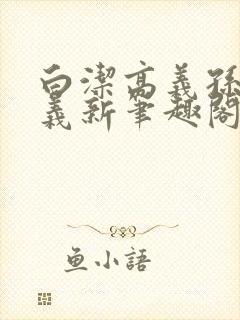 白潔高義孫
義新筆趣閣
魚小語